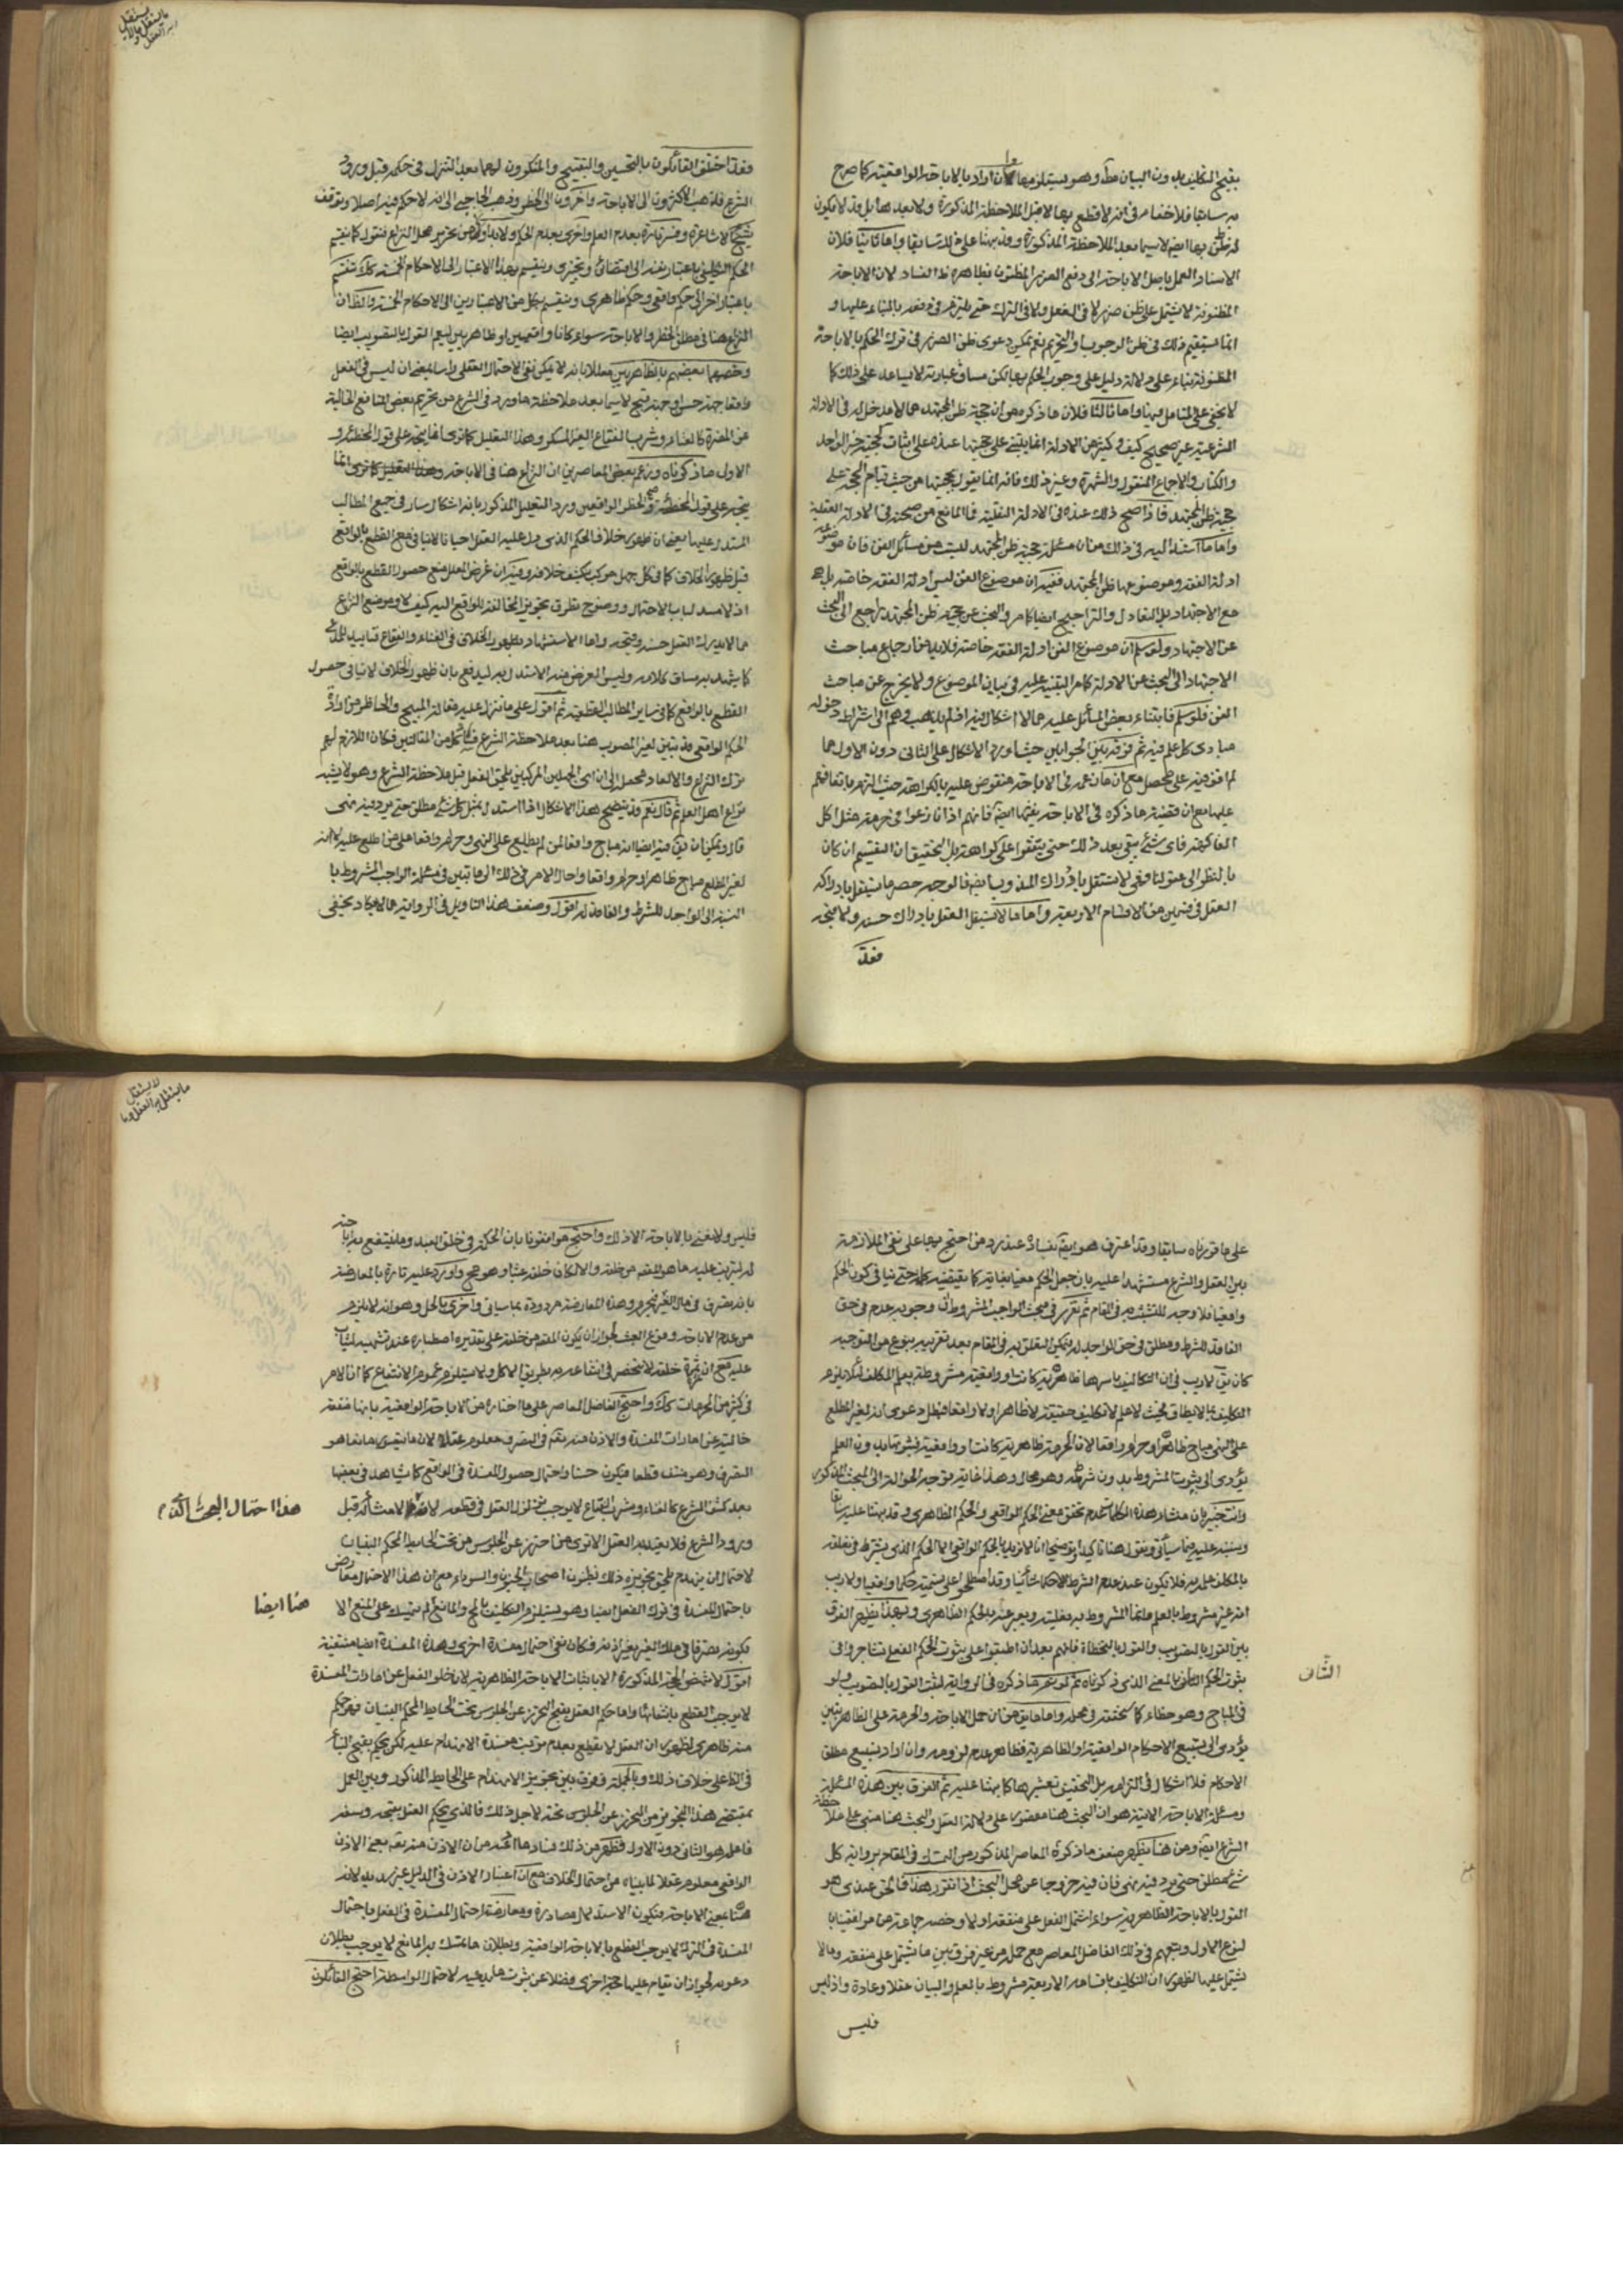 بقبح التكليف بدون البيان مط وهو يستلزمها وان اراد بالاباحة الواقعية كما صرح
به سابقا فلا خفاء في انه لا قطع بها لا قبل الملاحظة المذكورة ولا بعدها بل قد لا يكون
له ظن بها ايضا لا سيما بعد الملاحظة المذكورة وقد نبهنا على ذلك سابقا واما ثانيا فلان
الاستناد العمل باصل الاباحة الى دفع الضرر المظنون فظاهره ظ الفساد لان الاباحة
المظنونة لا يشتمل على ظن ضرر لا في الفعل ولا في الترك حتى يلتزم في دفعه بالبناء عليها و
انما يستقيم ذلك في ظن الوجوب او التحريم نعم يمكن دعوى ظن الضرر في ترك الحكم بالاباحة
المظنونة بناء على دلالة دليل على وجوب الحكم بها لكن مساق عبارته لا يساعد على ذلك كما
لا يخفى على المتامل فيها واما ثالثا فلان ما ذكره من ان حجية ظن المجتهد مما لا مدخل له في الادلة
الشرعية غير صحيح كيف وكثير من الادلة انما يبتني على حجيتها عنده على اثبات حجية خبر الواحد
والكتاب والاجماع المنقول والشهرة وغير ذلك فانه انما يقول بحجيتها من حيث قيام الحجة على
حجية ظن المجتهد فاذا صح ذلك عنده في الادلة النقلية فما المانع من صحته في الادلة العقلية
واما ما استند اليه في ذلك من ان مسئلة حجية ظن المجتهد ليست من مسائل الفن فان موضوعه
ادلة الفقه وموضوعها ظن المجتهد ففيه ان موضوع الفن ليس ادلة الفقه خاصة بل هي
مع الاجتهاد بل التعادل والتراجيح ايضا كما مر والبحث عن حجية ظن المجتهد راجع الى البحث
عن الاجتهاد ولو سلم ان موضوع الفن ادلة الفقه خاصة فلا بد من ارجاع مباحث
الاجتهاد الى البحث عن الادلة كما مر التنبيه عليه في بيان الموضوع ولا يخرج عن مباحث
الفن فلو سلم فابتناء بعض المسائل عليه مما لا اشكال فيه اذ لم يذهب وهم الى اشتراط دخول
مبادى كل علم فيه ثم فرقه بين الجوابين حيث اورد الاشكال على الثاني دون الاول مما
لم اقف فيه على محصل مع ان ما زعمه في الاباحة منقوض عليه بالكراهة حيث التزم باتفاقهم
عليها مع ان قضية ما ذكره في الاباحة يعمها ايضا فانهم اذا تنازعوا في حرمة مثل اكل
الفاكهة فاى شئ يبقى بعد ذلك حتى يتفقوا على كراهته بل التحقيق ان التقسيم ان كان
بالنظر الى عقولنا وهى لا تستقل بادراك المندوب ايضا فالوجه حصر ما يستقل بادراكه
العقل في ضمن من الاقسام الاربعة واما ما لا يستقل العقل بادراك حسنه ولا قبحه
فقد
ما يستقل وما لا يستقل به العقل
فقد اختلف القائلون بالتحسين والتقبيح والمنكرون لهما بعد التنزل في حكمه قبل ورود
الشرع فذهب الاكثرون الى الاباحة وآخرون الى الحظر وذهب الحاجبي الى انه لا حكم فيه اصلا وتوقف
شيخ الاشاعرة وفسر تارة بعدم العلم واخرى بعدم الحكم ولا بد اولا من تحرير محل النزاع فنقول كما ينقسم
الحكم التكليفي باعتبار نفسه الى اقتضائى وتخييرى وينقسم بهذا الاعتبار الى الاحكام الخمسة كذلك ينقسم
باعتبار اخر الى حكم واقعى وحكم ظاهرى وينقسم بكل من الاعتبارين الى الاحكام الخمسة والظ ان
النزاع هنا في مطلق الحظر والاباحة سواء كانا واقعيين او ظاهريين ليعم القول بالتصويب ايضا
وخصهما بعضهم بالظاهريين معللا بانه لا يمكن نفى الاحتمال العقلى راسا بمعنى ان ليس في الفعل
واقعا جهة حسن او جهة قبح لا سيما بعد ملاحظة ما ورد في الشرع من تحريم بعض المنافع الخالية
عن المضرة كالغناء وشرب الفقاع الغير المسكر وهذا التعليل كما ترى انما يتجه على قول المخطئة و
الاول ما ذكرناه وزعم بعض المعاصرين ان النزاع هنا في الاباحة وهذا التعليل كما ترى انما
يتجه على قول المخطئة والحظر الواقعيين ورد التعليل المذكور بانه اشكال سار في جميع المطالب
المستدل عليها بمعنى ان ظهور خلاف الحكم الذى دل عليه العقل احيانا لا ينافى مع القطع بالواقع
قبل ظهور الخلاف كما في كل جهل مركب يكشف خلافه وفيه ان غرض المعلل منع حصول القطع بالواقع
اذ لا مسد لباب الاحتمال ووضوح تطرق تجويز المخالفة للواقع اليه كيف لا وموضع النزاع
مما لا يدرك العقل حسنه وقبحه واما الاستشهاد بظهور الخلاف في الغناء والفقاع فتاييد للمدعى
كما يشهد به مساق كلامه وليس الغرض منه الاستدلال به ليدفع بان ظهور الخلاف لا ينافى حصول
القطع بالواقع كما في ساير المطالب القطعية ثم اقول على ما نزل عليه مقالة المبيح والحاظر من ارادة
الحكم الواقعى قد يتبين لغير المصوب هنا بعد ملاحظة الشرع فساد كل من المقالتين فكان اللازم لهم
ترك النزاع
نزاع اهل العلم ثم قال نعم قد يتضح هذا الاشكال اذا استدل بمثل كل شئ مطلق حتى يرد فيه نهى
قال ويمكن ان يق فيه ايضا انه مباح واقعا لمن لم يطلع على النهى وحرام واقعا على من اطلع عليه لا انه
لغير المطلع مباح ظاهرا وحرام واقعا واحال الامر في ذلك الى ما تبين في مسئلة الواجب المشروط با
لنسبة الى الواجد للشرط والفاقد له اقول وضعف هذا التاويل في الرواية مما لا يكاد يخفى
على ما قررناه سابقا وقد اعترف هو ايضا بفساده عند رد من احتج بها على نفى الملازمة
بين العقل والشرع مستشهدا عليه بان جعل الحكم مغيا بغاية
واقعيا فلا وجه للتشبث به في المقام ثم تقرر في مبحث الواجب المشروط ان وجوبه عدم في حق
الفاقد للشرط ومطلق في حق الواجد له ويمكن التعلق به في المقام بعد تقريبه بنوع من التوجيه
كان يق لا ريب في ان التكاليف باسرها ظاهرية كانت او واقعية مشروطة بعلم المكلف لئلا يلزم
التكليف بما لا يطاق فحيث لا علم لا تكليف حقيقة لا ظاهرا ولا واقعا فبطل دعوى انه لغير المطلع
على النهى مباح ظاهرا وحرام واقعا لان الحرمة ظاهرية كانت او واقعية ثبوتها بدون العلم
يؤدى الى ثبوت المشروط بدون شرطه وهو محال وهذا غاية توجيه الحوالة الى المبحث المذكور
وانت خبير بان منشا هذه الكلمات عدم تحقق معنى الحكم الواقعى والحكم الظاهرى وقد نبهنا عليه سابقا
وسننبه عليه فيما سيأتى ونقول هنا تاكيدا وتوضيحا انا لا نريد بالحكم الواقعى الا الحكم الذى يشترط في تعلقه
بالمكلف علمه به فلا يكون عند عدم الشرط الا حكما شأنيا وقد اصطلحوا على تسميته حكما واقعيا ولا ريب
انه غير مشروط بالعلم وانما المشروط به فعليته ويعبر عنه بالحكم الظاهرى وبهذا يظهر الفرق
بين القول بالتصويب والقول بالتخطئة فانهم بعد ان اطبقوا على ثبوت الحكم الفعلى تشاجروا في
ثبوت الحكم الشأنى بالمعنى الذى ذكرناه ثم لو تم ما ذكره في الرواية لثبت القول بالتصويب ولو
في المباح وهو خطاء كما سنحققه في محله واما ما يق من ان حمل الاباحة والحرمة على الظاهريتين
يؤدى الى تسبيع الاحكام الواقعية او الظاهرية فظاهر عدم لزومه وان اراد تسبيع مطلق
الاحكام فلا اشكال في التزامه بل التحقيق تعشيرها كما نبهنا عليه ثم الفرق بين هذه المسئلة
ومسئلة الاباحة الاتية هو ان البحث هنا مقصور على دلالة العقل والبحث هنا مبنى على ملاحظة
الشرع ايضا ومن هنا يظهر ضعف ما ذكره المعاصر المذكور من التمسك في المقام برواية كل
شئ مطلق حتى يرد فيه نهى فان فيه خروجا عن محل البحث اذا تقرر هذا فالحق عندى هو
القول بالاباحة الظاهرية سواء اشتمل الفعل على منفعة اولا وخصه جماعة من موافقينا با
لنوع الاول وتبعهم في ذلك الفاضل المعاصر مع جملة من غير فرق بين ما يشتمل على منفعة وما لا
يشتمل عليها لظهور ان التكليف باقسامه الاربعة مشروط بالعلم والبيان عقلا وعادة واذ ليس
فليس
الثاني
ما يستقل به العقل وما لا يستقل
فليس ولا نعنى بالاباحة الا ذلك واحتج موافقونا بان الحكمة في خلق العبد وما ينتفع به اباحته
له ليترتب عليه ما هو المقصد من خلقه والا لكان خلقه عبثا وهو قبيح واورد عليه تارة بالمعارضة
بانه تصرف في مال الغير فيحرم وهذا المعارضة مردودة بما سياتى واخرى بالحل وهو انه لا يلزم
من عدم الاباحة وقوع العبث لجواز ان يكون المقصد من خلقه على تقديره اصطباره عنه وتشهيه ليثاب
عليه مع ان ثمرة خلقه لا تنحصر في انتفاعه به بطريق الاكل ولا يستلزم عموم الانتفاع كما ان الامر
في كثير من المحرمات كذلك واحتج الفاضل المعاصر على ما اختاره من الاباحة الواقعية بانها منفعة
خالية عن امارات المفسدة والاذن منه تعالى في التصرف معلوم عقلا لان ما يتصور مانعا هو
التصرف وهو منتف قطعا فيكون حسنا واحتمال حصول المفسدة في الواقع كما يشاهد في بعضها
بعد كشف الشرع كالغناء وشرب الفقاع لا يوجب تزلزل العقل في قطعه لانه لا منشأ له قبل
ورود الشرع فلا يعتد به العقل الا ترى من احترز عن الجلوس من تحت الحايط المحكم البنيان
لاحتمال ان ينهدم يلحق بتجويزه ذلك بظنون اصحاب الجنون والسوداء مع ان هذا الاحتمال معارض
باحتمال المفسدة في ترك الفعل ايضا وهو يستلزم التكليف بالمحال والمانع لم يتمسك على المنع الا
بكونه تصرفا في ملك الغير بغير اذنه فكان نفى احتمال مفسدة اخرى وهذه المفسدة ايضا منتفية
اقول لا تنهض الحجة المذكورة الا باثبات الاباحة الظاهرية لان خلو الفعل عن امارات المفسدة
لا يوجب القطع بانتفائها واما حكم العقل بقبح التحرز عن الجلوس تحت الحايط المحكم البنيان فهو حكم
منه ظاهرى لظهور ان العقل لا يقطع بعدم ترتب مفسدة الانهدام عليه لكن يحكم بقبح البناء
في الظ على خلاف ذلك وبالجملة فرق بين تجويز الانهدام على الحايط المذكور وبين العمل
بمقتضى هذا التجويز من التحرز عن الجلوس تحته لاجل ذلك فالذى يحكم العقل بقبحه ويسفه
فاعله هو الثانى دون الاول فظهر من ذلك فساد ما ادعاه من ان الاذن منه تعالى بمعنى الاذن
الواقعى معلوم عقلا لما بيناه من احتمال الخلاف مع ان اعتبار الاذن في الدليل غير سديد لانه
هنا بمعنى الاباحة فيكون الاستدلال مصادرة ومعارضة احتمال المفسدة في الفعل باحتمال
المفسدة في الترك لا يوجب القطع بالاباحة الواقعية وبطلان ما تمسك به المانع لا يوجب بطلان
دعويه لجواز ان يقام عليها حجة اخرى فضلا عن ثبوت ما يدعيه لاحتمال الواسطة احتج القائلون
هنا ايضا